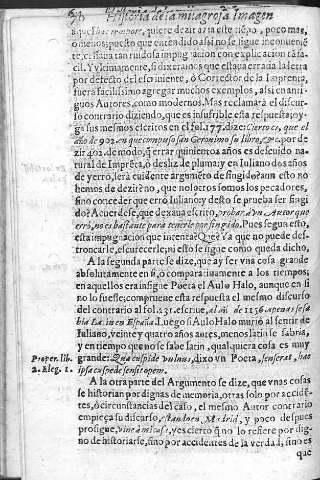 Historia de la milagrosa Imagen
aquel hac tempore, quiere dezir a in este tiẽpo, poco mas,
o menos; puesto que entendido assi no se sigue inconueniẽ
te, ni hazen falta a tanta impugnacion con explicacion tã fa-
cil. Y vltimamente, si dixeramos que estaua errada la letra
por defecto del escriuiente, ò Corrector de la Imprenta,
fuera facilissimo agregar muchos exemplos, assi en anti-
guos Autores, como modernos. Mas reclamarà el discur-
so contrario diziendo, que es insufrible esta respuesta; oy-
ga sus mesmos escritos en el fol. 177. dize: Cierto es, que el
año de 902 en que compuso san Geronimo su libro, &c. por de-
zir 402. de modo, q̃ errar quinientos años es descuido na-
tural de Imprẽta, ò desliz de pluma; y en Iuliano dos años
de yerro, serà euidente argumẽto de fingido? aun esto no
hemos de dezir? no, que nosotros somos los pecadores,
sino conceder que errò Iuliano: y desto se prueba ser fingi
do? Acuerdese, que dexaua escrito, probar à vn Autor que
errò, no es bastante para tenerle por fingido. Pues segun esto,
esta impugnacion que intenta? Que? à que no puede des-
troncarle, escurecerle, ni esto se sigue como queda dicho.
A la segunda parte se dize, que ay ser vna cosa grande
absolutamente en si, ò comparatiuamente a los tiempos,
en aquellos era insigne Poeta el Aulo Halo, aunque en si
no lo fuesse; comprueue esta respuesta el mesmo discurso
del contrario al fol. 231. escriue, al añ. de 1136. apenas se sa
bia La in en España. Luego si Aulo Halo muriò al sentir de
Iuliano, veinte y quatro años antes, menos latin se sabria,
y en tiempo que no se sabe latin, qualquiera cosa es muy
Proper. lib. grande: Qua cuspide vulnus, dixo vn Poeta, senserat, hac
2. Eleg. 1. ipsa cuspide sensit opem.
A la otra parte del Argumento se dize, que vnas cosas
se historian por dignas de memoria, otras solo por accidẽ-
tes, ò circunstancias del caso, el mesmo Autor contrario
empieça su discurso, estando en Madrid, y poco despues
prosigue, vine à mi casa, yes cierto q̃ no lo refiere por dig-
no de historiarse, sino por accidentes de la verdad, sino es
que